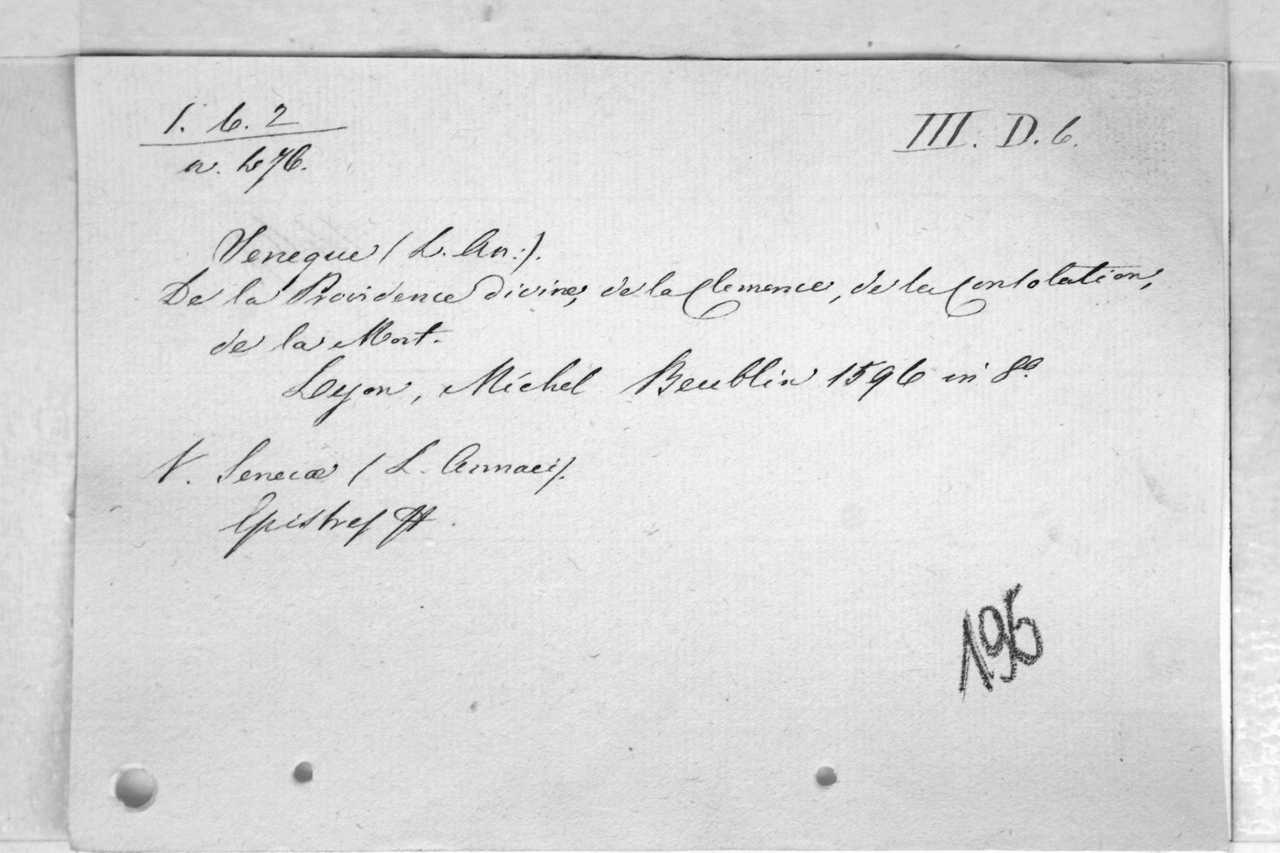 1. 6. 2
III. D. 6.
n. 476.
Seneque (L. An.).
De la Providence divine, de la Clemence, de la Consolation,
de la Mort.
Lyon, Michel Beublin 1596 in 8º
V. Senecæ (L. Annaei).
Epistres
195